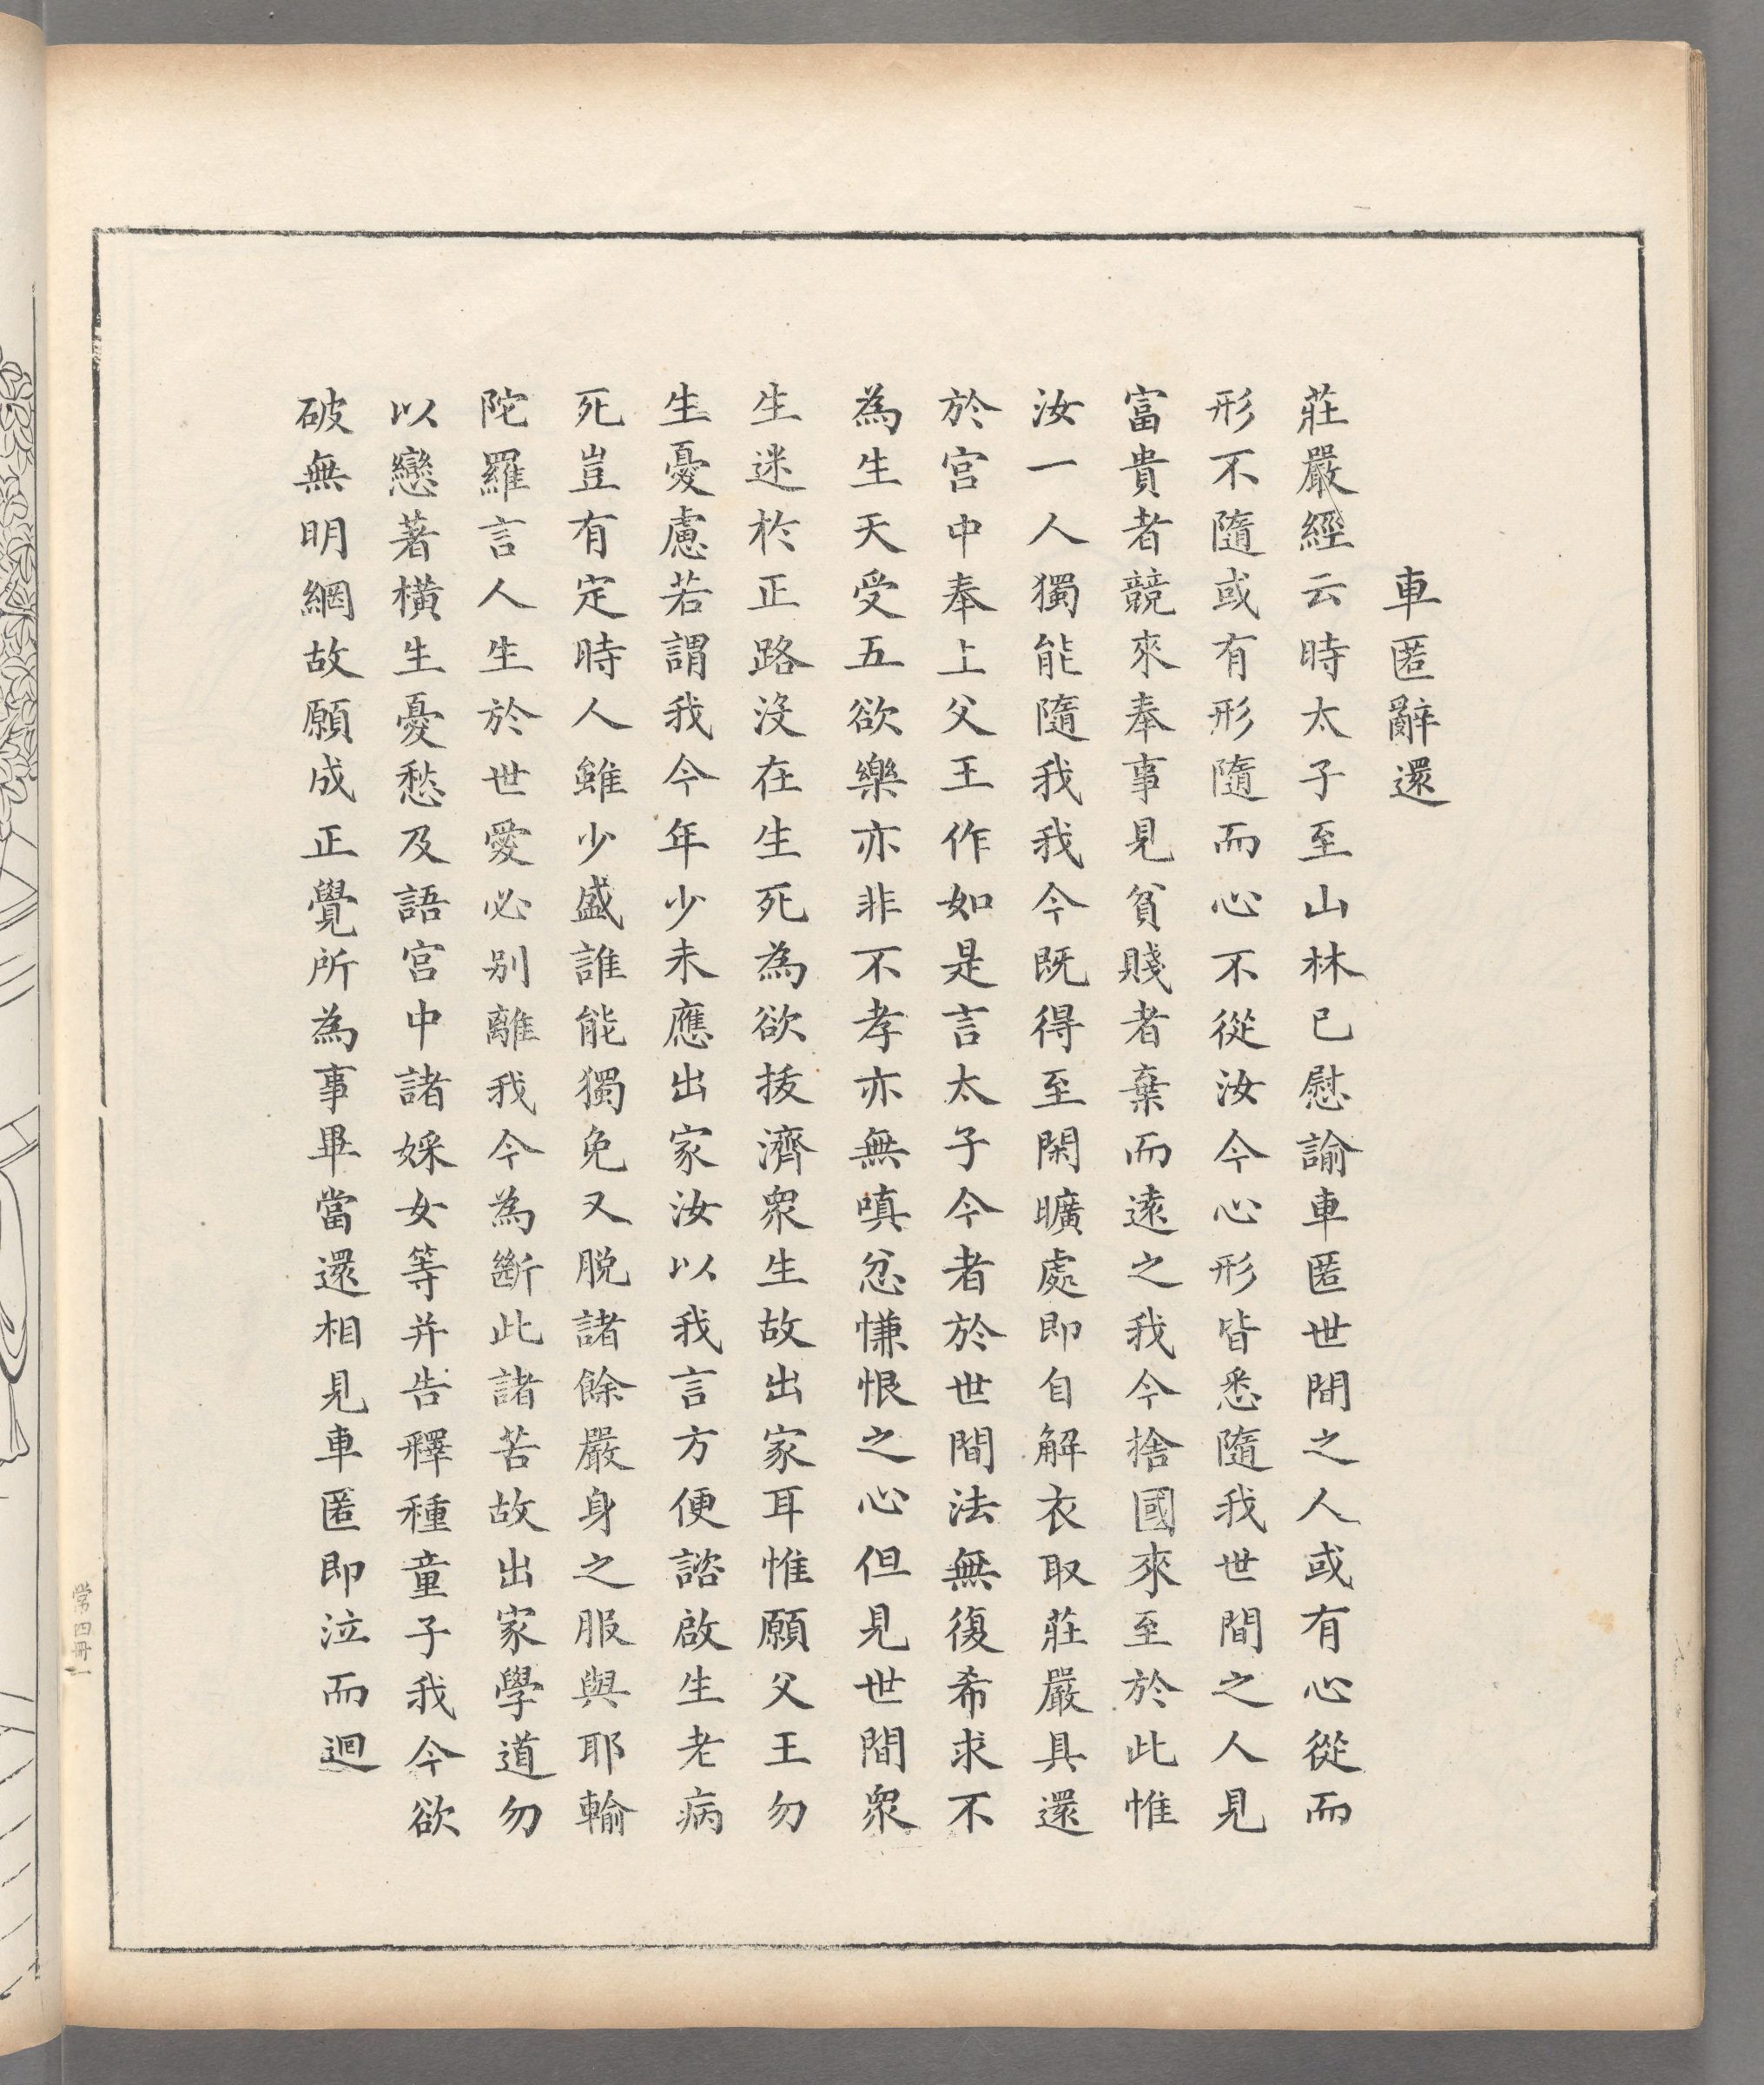 車匿辭還
莊嚴經云時太子至山林已慰諭車匿世間之人或有心從而
形不隨或有形隨而心不從汝今心形皆悉隨我世間之人見
富貴者競來奉事見貧賤者棄而遠之我今捨國來至於此惟
汝一人獨能隨我我今既得至閑曠處即自解衣取莊嚴具還
於宮中奉上父王作如是言太子今者於世間法無復希求不
為生天受五欲樂亦非不孝亦無嗔忿慊恨之心但見世間眾
生迷於正路沒在生死為欲拔濟眾生故出家耳惟願父王勿
生憂慮若謂我今年少未應出家汝以我言方便諮啟生老病
死豈有定時人雖少盛誰能獨免又脫諸餘嚴身之服與耶輸
陀羅言人生於世愛必別離我今為斷此諸苦故出家學道勿
以戀著橫生憂愁及語宮中諸婇女等并告釋種童子我今欲
破無明網故願成正覺所為事畢當還相見車匿即泣而迴
常四冊一